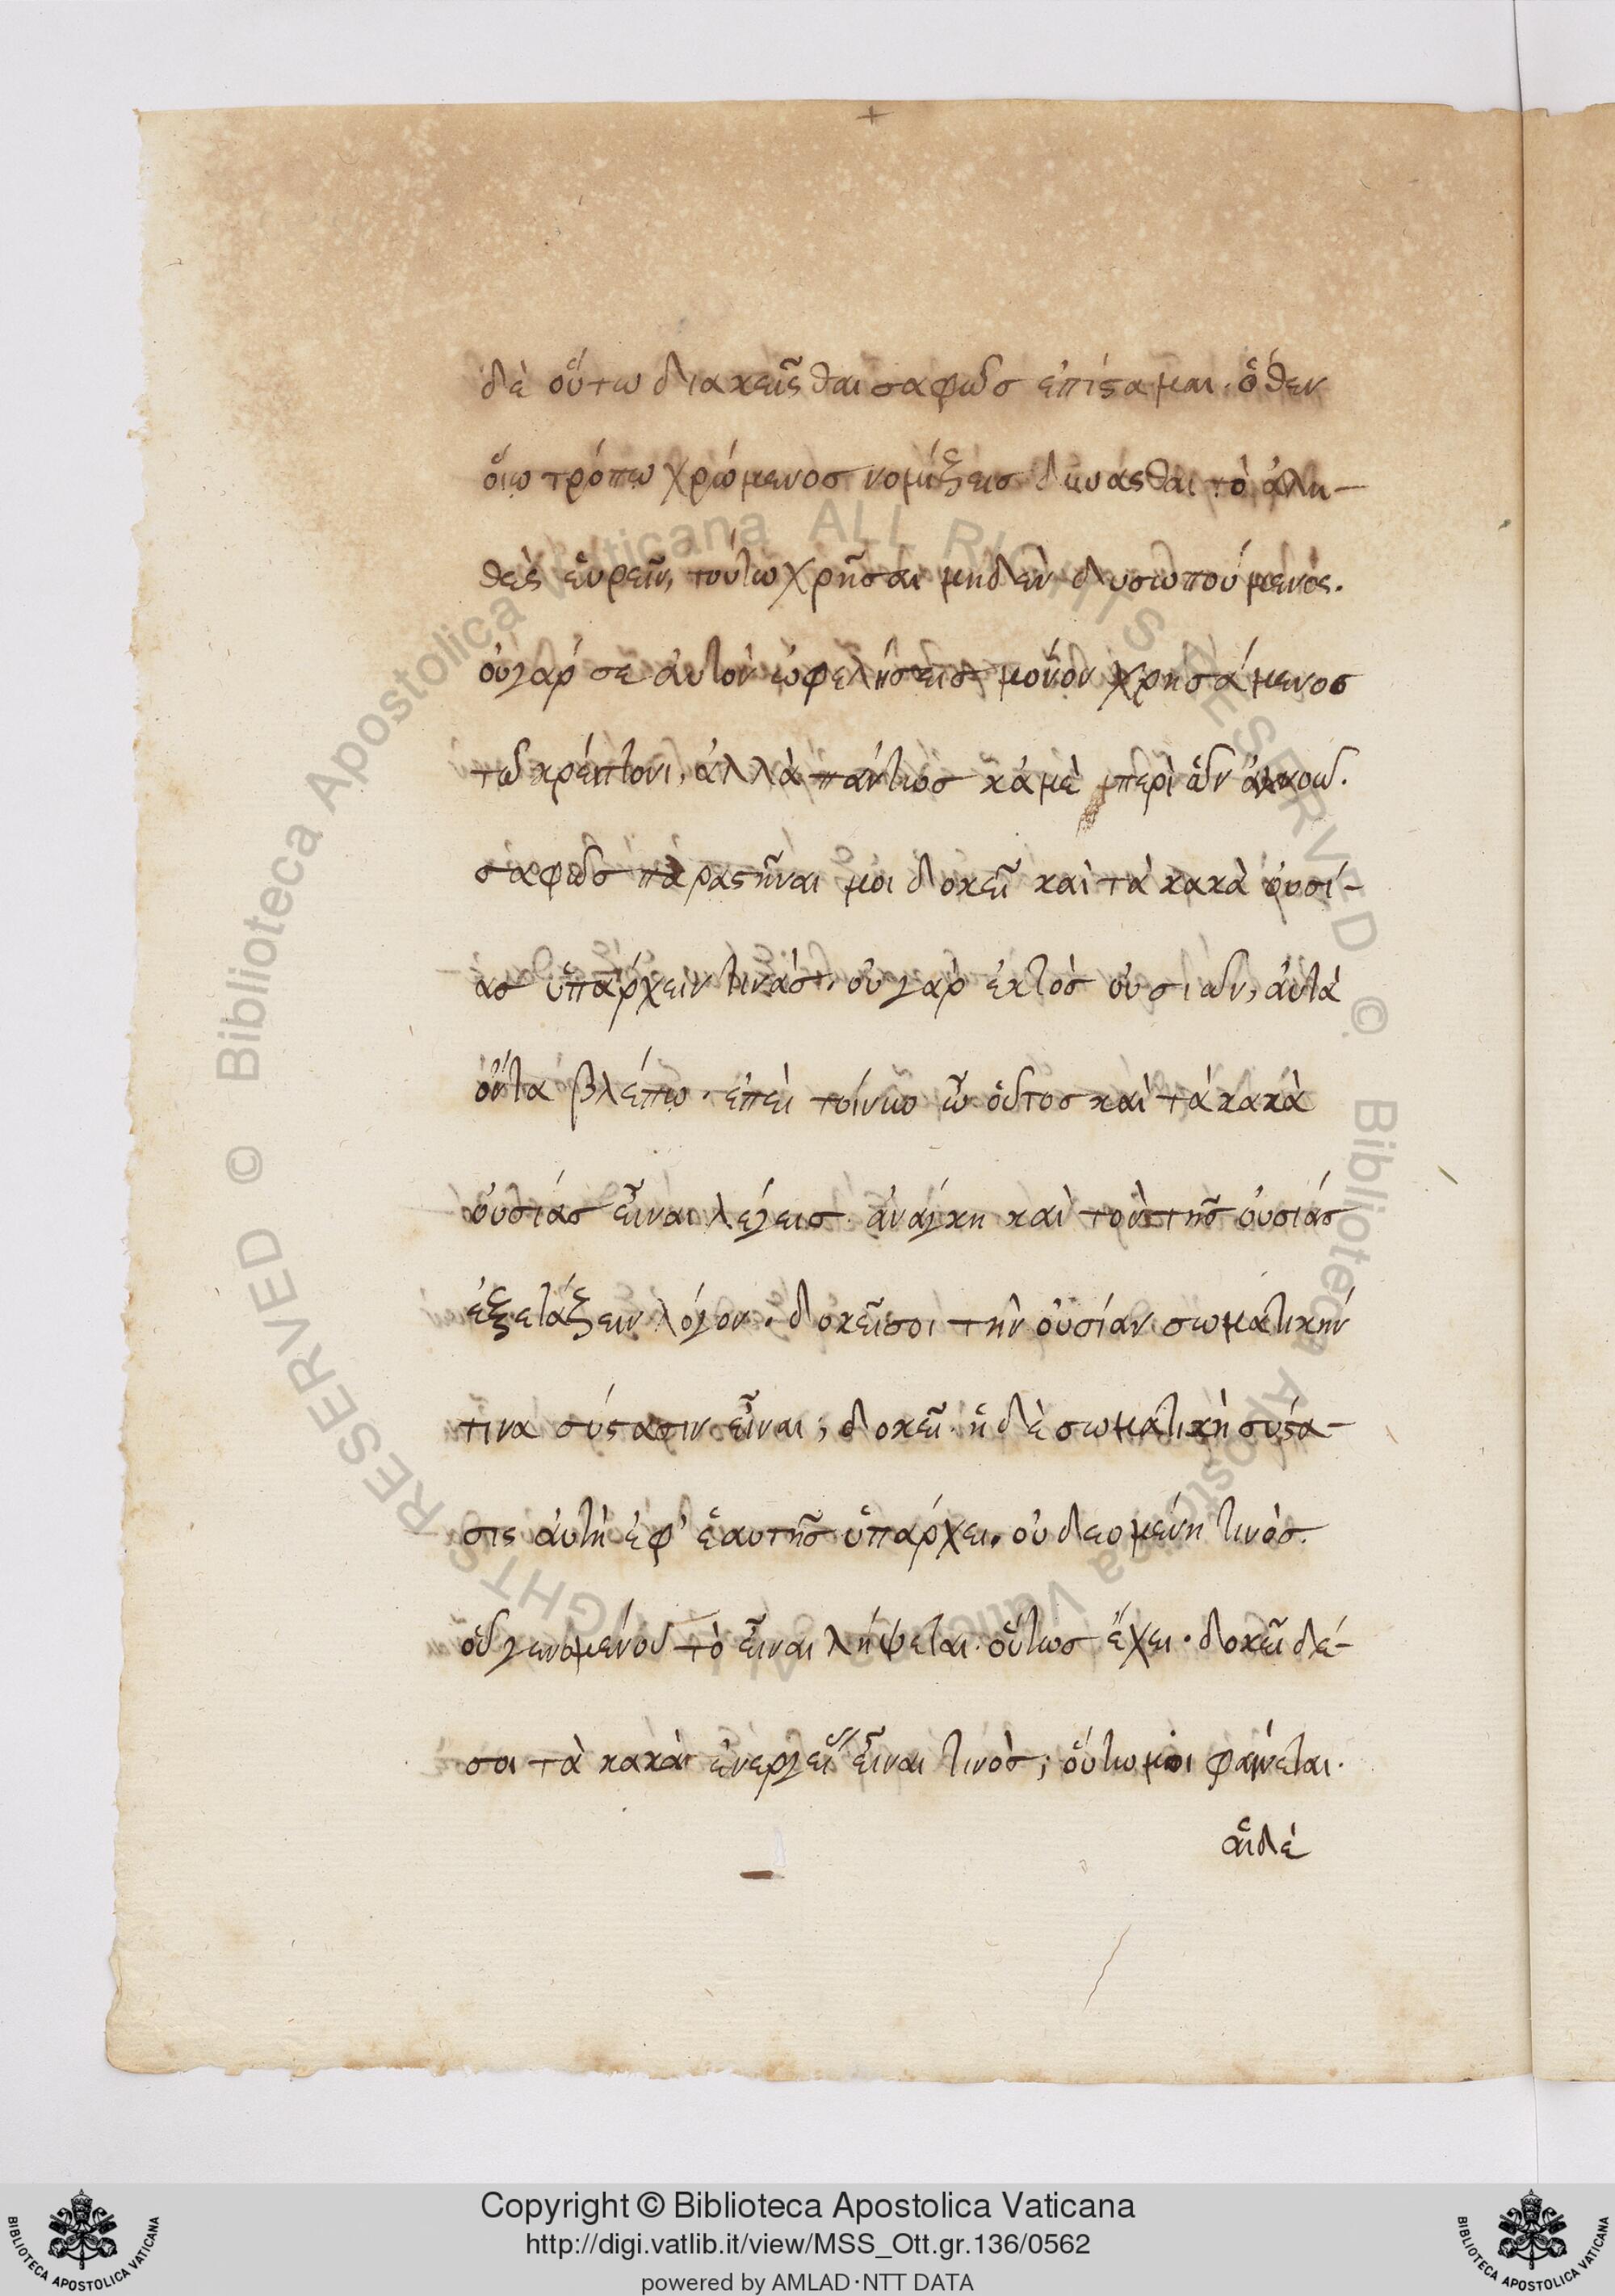 δὲ οὕτω διακεῖσθαι σαφῶσ ἐπίσταμαι. ὅθεν
οἵω τρόπω χρώμενοσ νομίζεισ δύνασθαι τὸ ἀλη-
θὲς εὑρεῖν, τούτω χρῆσαι μηδὲν δυσωπούμενος.
οὐγὰρ σε ἀυτὸν ὠφελήσεισ μόνον χρησάμενοσ
τῶ κρείττονι, ἀλλὰ πάντωσ κἀμὲ περὶ ὧν ἀκούω.
σαφῶσ παραστῆναι μοι δοκεῖ καὶ τὰ κακὰ οὐσί-
ασ ὑπάρχειν τινάσ. οὐ γὰρ ἐκτὸσ οὐσιῶν, ἀυτὰ
ὄντα βλέπω. ἐπεὶ τοίνυν ὦ οὗτοσ καὶ τὰ κακὰ
οὐσίασ εἶναι λέγεισ. ἀνάγκη καὶ τὸν τῆσ οὐσίασ
ἐξετάζειν λόγον. δοκεῖσοι τὴν οὐσίαν σωματικήν
τινα σύστασιν εἶναι; δοκεῖ. ἡ δὲ σωματικὴ σύστα-
σις ἀυτὴ ἐφ' ἑαυτῆσ ὑπάρχει. οὐ δεομένη τινὸσ.
οὗ γενομένου τὸ εἶναι λήψεται. οὕτωσ ἔχει. δοκεῖ δέ
σοι τὰ κακὰ ἐνεργεῖ" εἶναι τινὸσ; οὕτω μοι φαίνεται.
αἱδὲ
Copyright © Biblioteca Apostolica Vaticana
http://digi.vatlib.it/view/MSS_Ott.gr.136/0562
powered by AMLAD·NTT DATA
BIBLIOTECA APOSTOLICA VATICANA
BIBLIOTECA APOSTOLICA VATICANA
© Biblioteca Apostolica Vaticana ALL RIGHTS RESERVED © Biblioteca Apostolica Vaticana ALL RIGHTS RESERVED